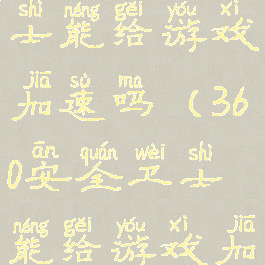 shì néng gěi yóu xì
士能给游戏
jiā sù ma
加速吗(36
ān quán wèi shì
0安全卫士
néng gěi yóu xì jiā
能给游戏加